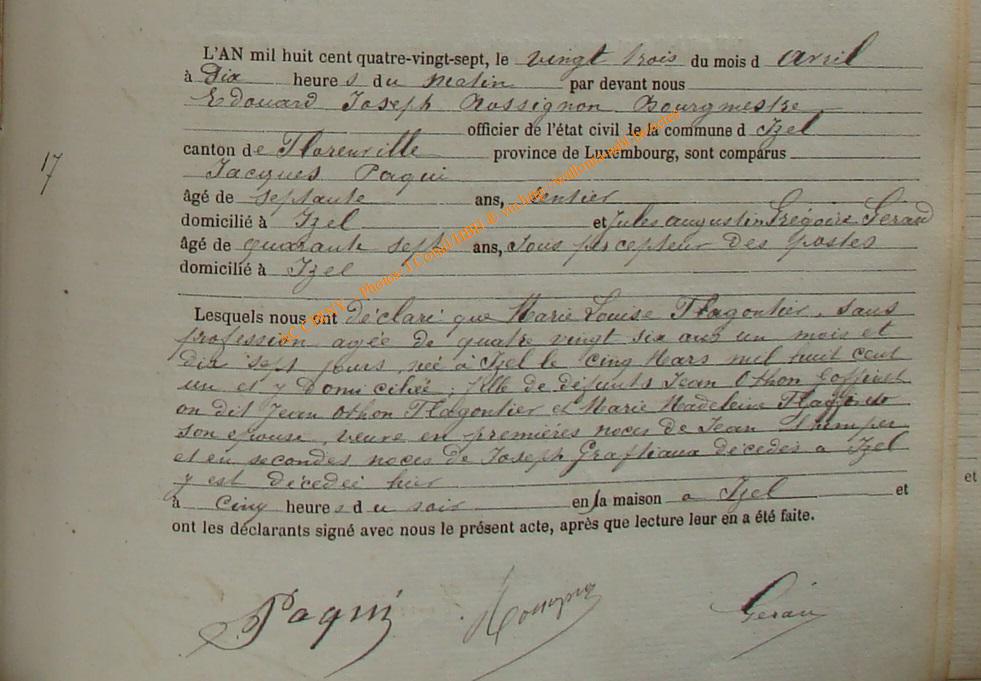 L'AN mil huit cent quatre-vingt-sept, le vingt trois du mois d avril
à Dix heure s du matin par devant nous
Edouard Joseph Rossignon Bourgmestre
officier de l'état civil de la commune d Izel
canton de Florenville province de Luxembourg, sont comparus
17
Jacques Paqui
âgé de septante ans, rentier
domicilié à Izel et Jules augustin Grégoire Gérard
âgé de quarante sept ans, Sous percepteur des postes
domicilié à Izel
Lesquels nous ont déclaré que Marie Louise Flagontier, sans
profession agée de quatre vingt six ans un mois et
dix sept jours, née à Izel le cinq Mars mil huit cent
un et y domiciliée, fille de défunts Jean Othon Goffinet
on dit Jean Othon Flagontier et Marie Madeleine
son epouse, veuve en premières noces de Jean
et en secondes noces de Joseph Graftiaux décédés à Izel
y est décédée hier
à cinq heure s d u soir en la maison à Izel et
ont les déclarants signé avec nous le présent acte, après que lecture leur en a été faite.
et
Paqui Rossignon Gérard